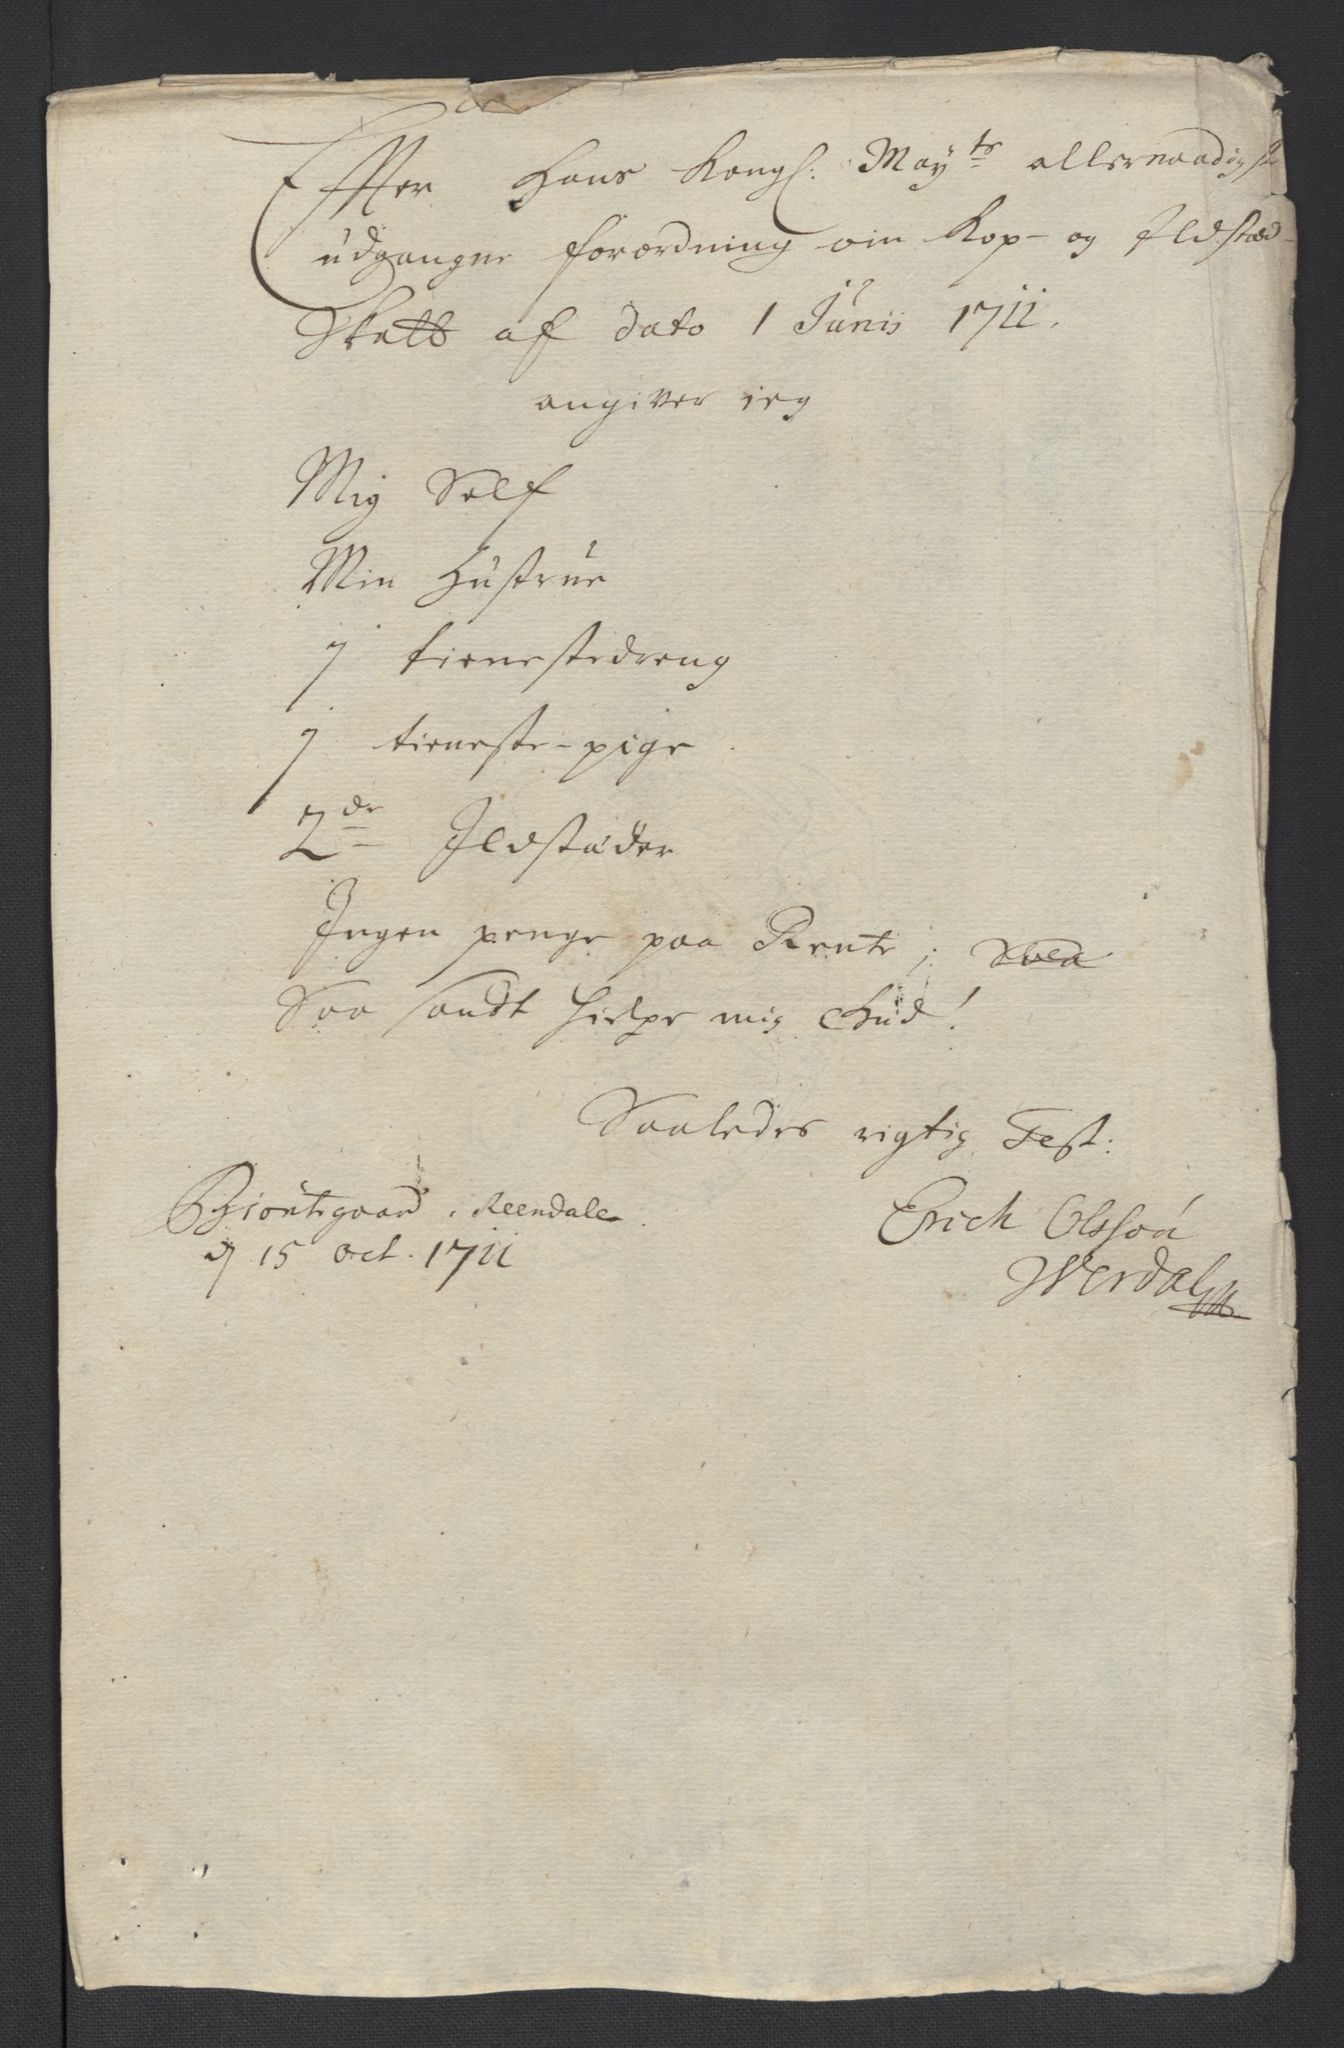 Effter Hans Kongl: May^ts allernaadigste
udgangne forordning om Kop- og Ildstæd-
Skatt af dato 1 Junij 1711.
angiver ieg
Mig Self
Min Hustrue
j tienestedreng
j tieneste-pige
2^de Ildstæder
Ingen penge paa Rente;
Saa sandt hielpe mig Gud!
Saaledes rigtig Test:
Erich Olssøn
Werdal
Biontegaard i Reendalen
d 15 Oct. 1711